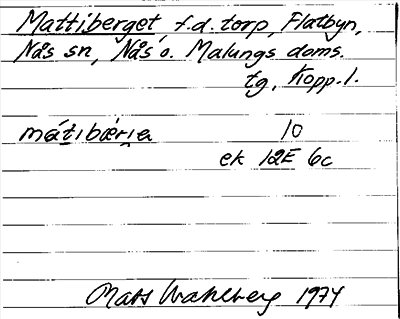 Mattiberget f.d. torp, Flatbyn,
Nås sn, Nås o. Malungs doms.
tg, Kopp. l.
mátibær̯i̯a 10
ek 12E 6c
Mats Wahlberg 1974